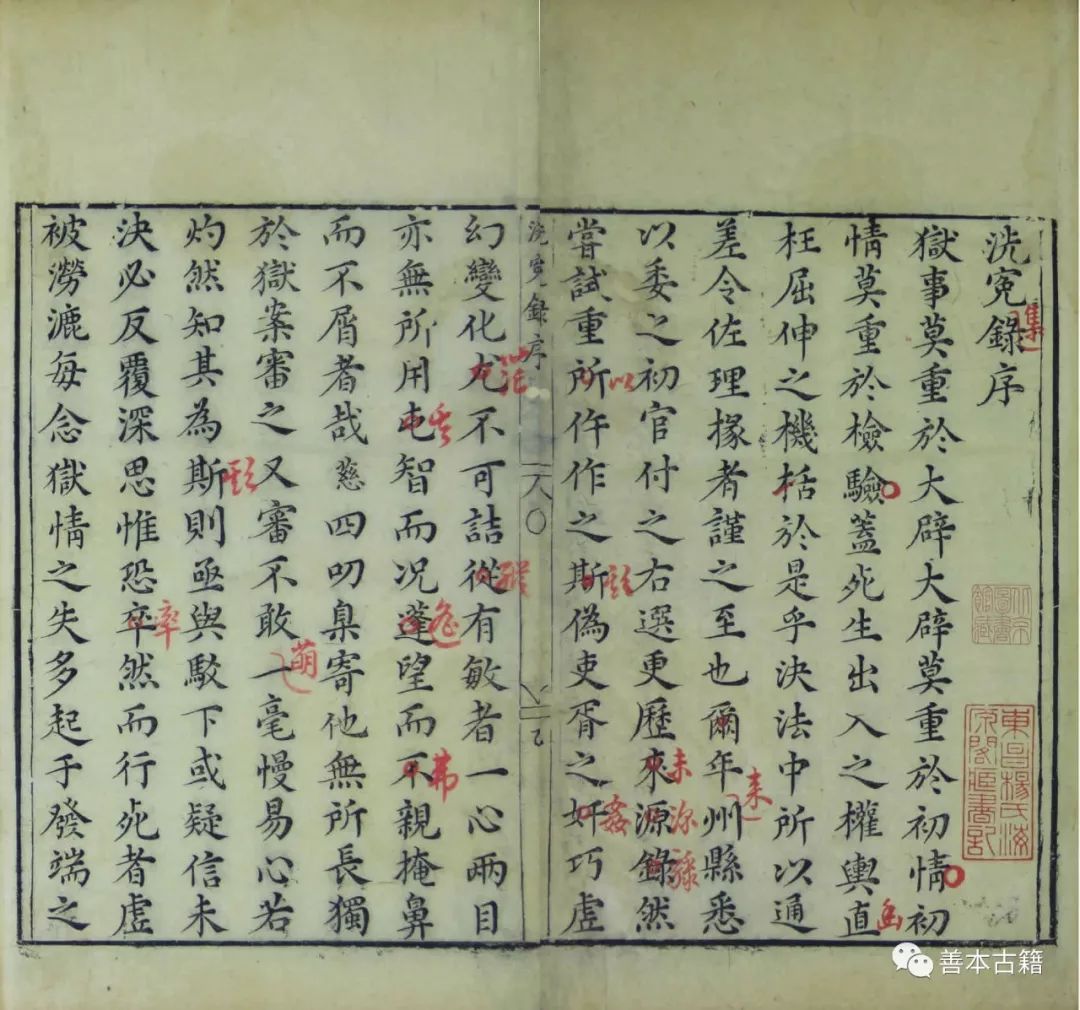 洗寃錄序
集
獄事莫重於大辟大辟莫重於初情初
情莫重於檢驗蓋死生出入之權輿直
枉屈伸之機栝於是乎決法中所以通
差令佐理掾者謹之至也爾年州縣悉
以委之初官付之右選更歷來源錄然
嘗試重所仵作之斯偽吏胥之奸巧虛
洗寃錄序
幻變化尤不可詰從有敏者一心兩目
亦無所用屯智而况蓬望而不親掩鼻
而不屑者哉慈四叨臬寄他無所長獨
於獄案審之又審不敢一毫慢易心若
灼然知其為斯則亟與駁下或疑信未
決必反覆深思惟恐卒然而行死者虛
被澇漉每念獄情之失多起于發端之
來
未
以
姦
茫
弗
萌
率
東昌楊氏海
善本古籍